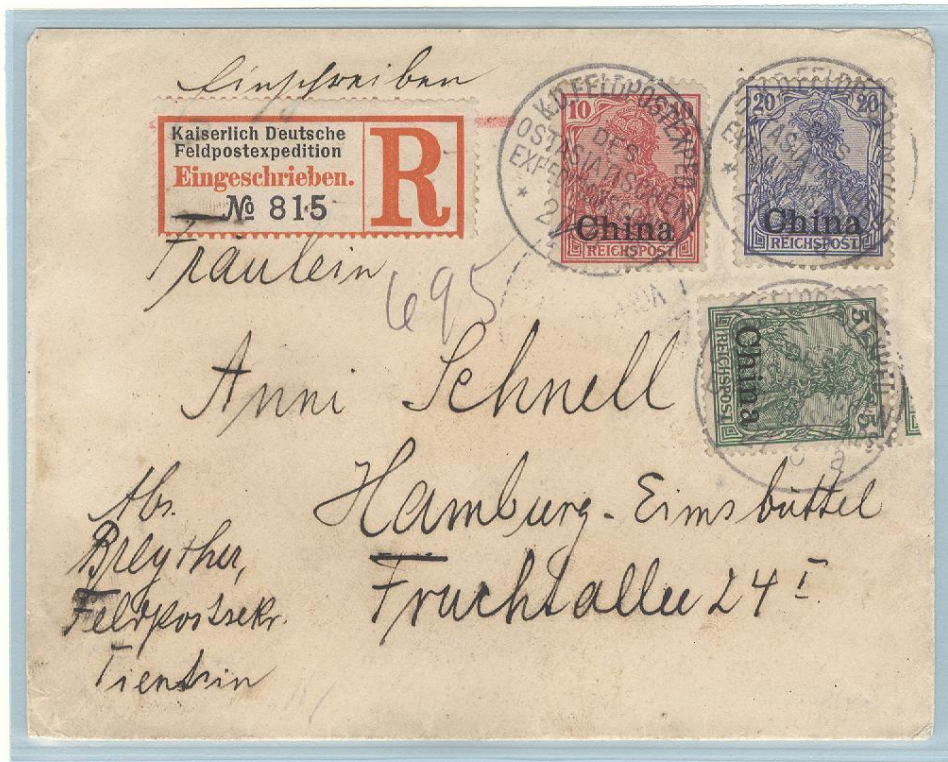 Einschreiben
Kaiserlich Deutsche
Feldpostexpedition
Eingeschrieben.
№ 815
R
K.D. FELDPOSTEXPED.
DES
OSTASIATISCHEN
EXPEDITIONS
10 10
China
REICHSPOST
20 20
China
REICHSPOST
5 5
China
REICHSPOST
Fräulein
695
Anni Schnell
Hamburg-Eimsbüttel
Fruchtallee 24 I
Abs.
Breyther,
Feldpostsekr.
Tientsin